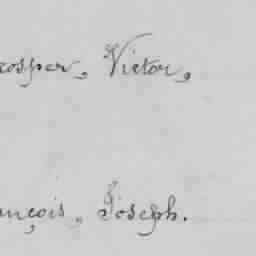 rosper, Victor,
ançois, Joseph.